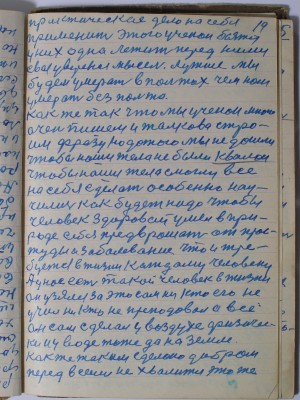 19
практическое дело на себя
применит этого ученом
у них одна летит перед ними
мысел. лучше мы
будем умерат в поптох чем нам
умерат без попта.
Как же так что мы ученом много
очен пишем и толково стро-
им фразу но до того мы не дошли
чтобы нашы тела не были
чтобы нашы тела смоглы всё
на себя сделат особенно нау-
чимих как будет надо чтобы
человек здаровой ушел в при-
роде себя предворошат от прос-
туды и заболевание Что и тре-
буется в жизни каждому человеку
А у нас ест такой человек в жизни
он узялся за это сам ни кто его не
учил ни кто не преподовал а всё
он сам сделал у воздухе
ни и у воде тоже да на земле
как же таким сделано добром
перед всеми не хвалится тоже